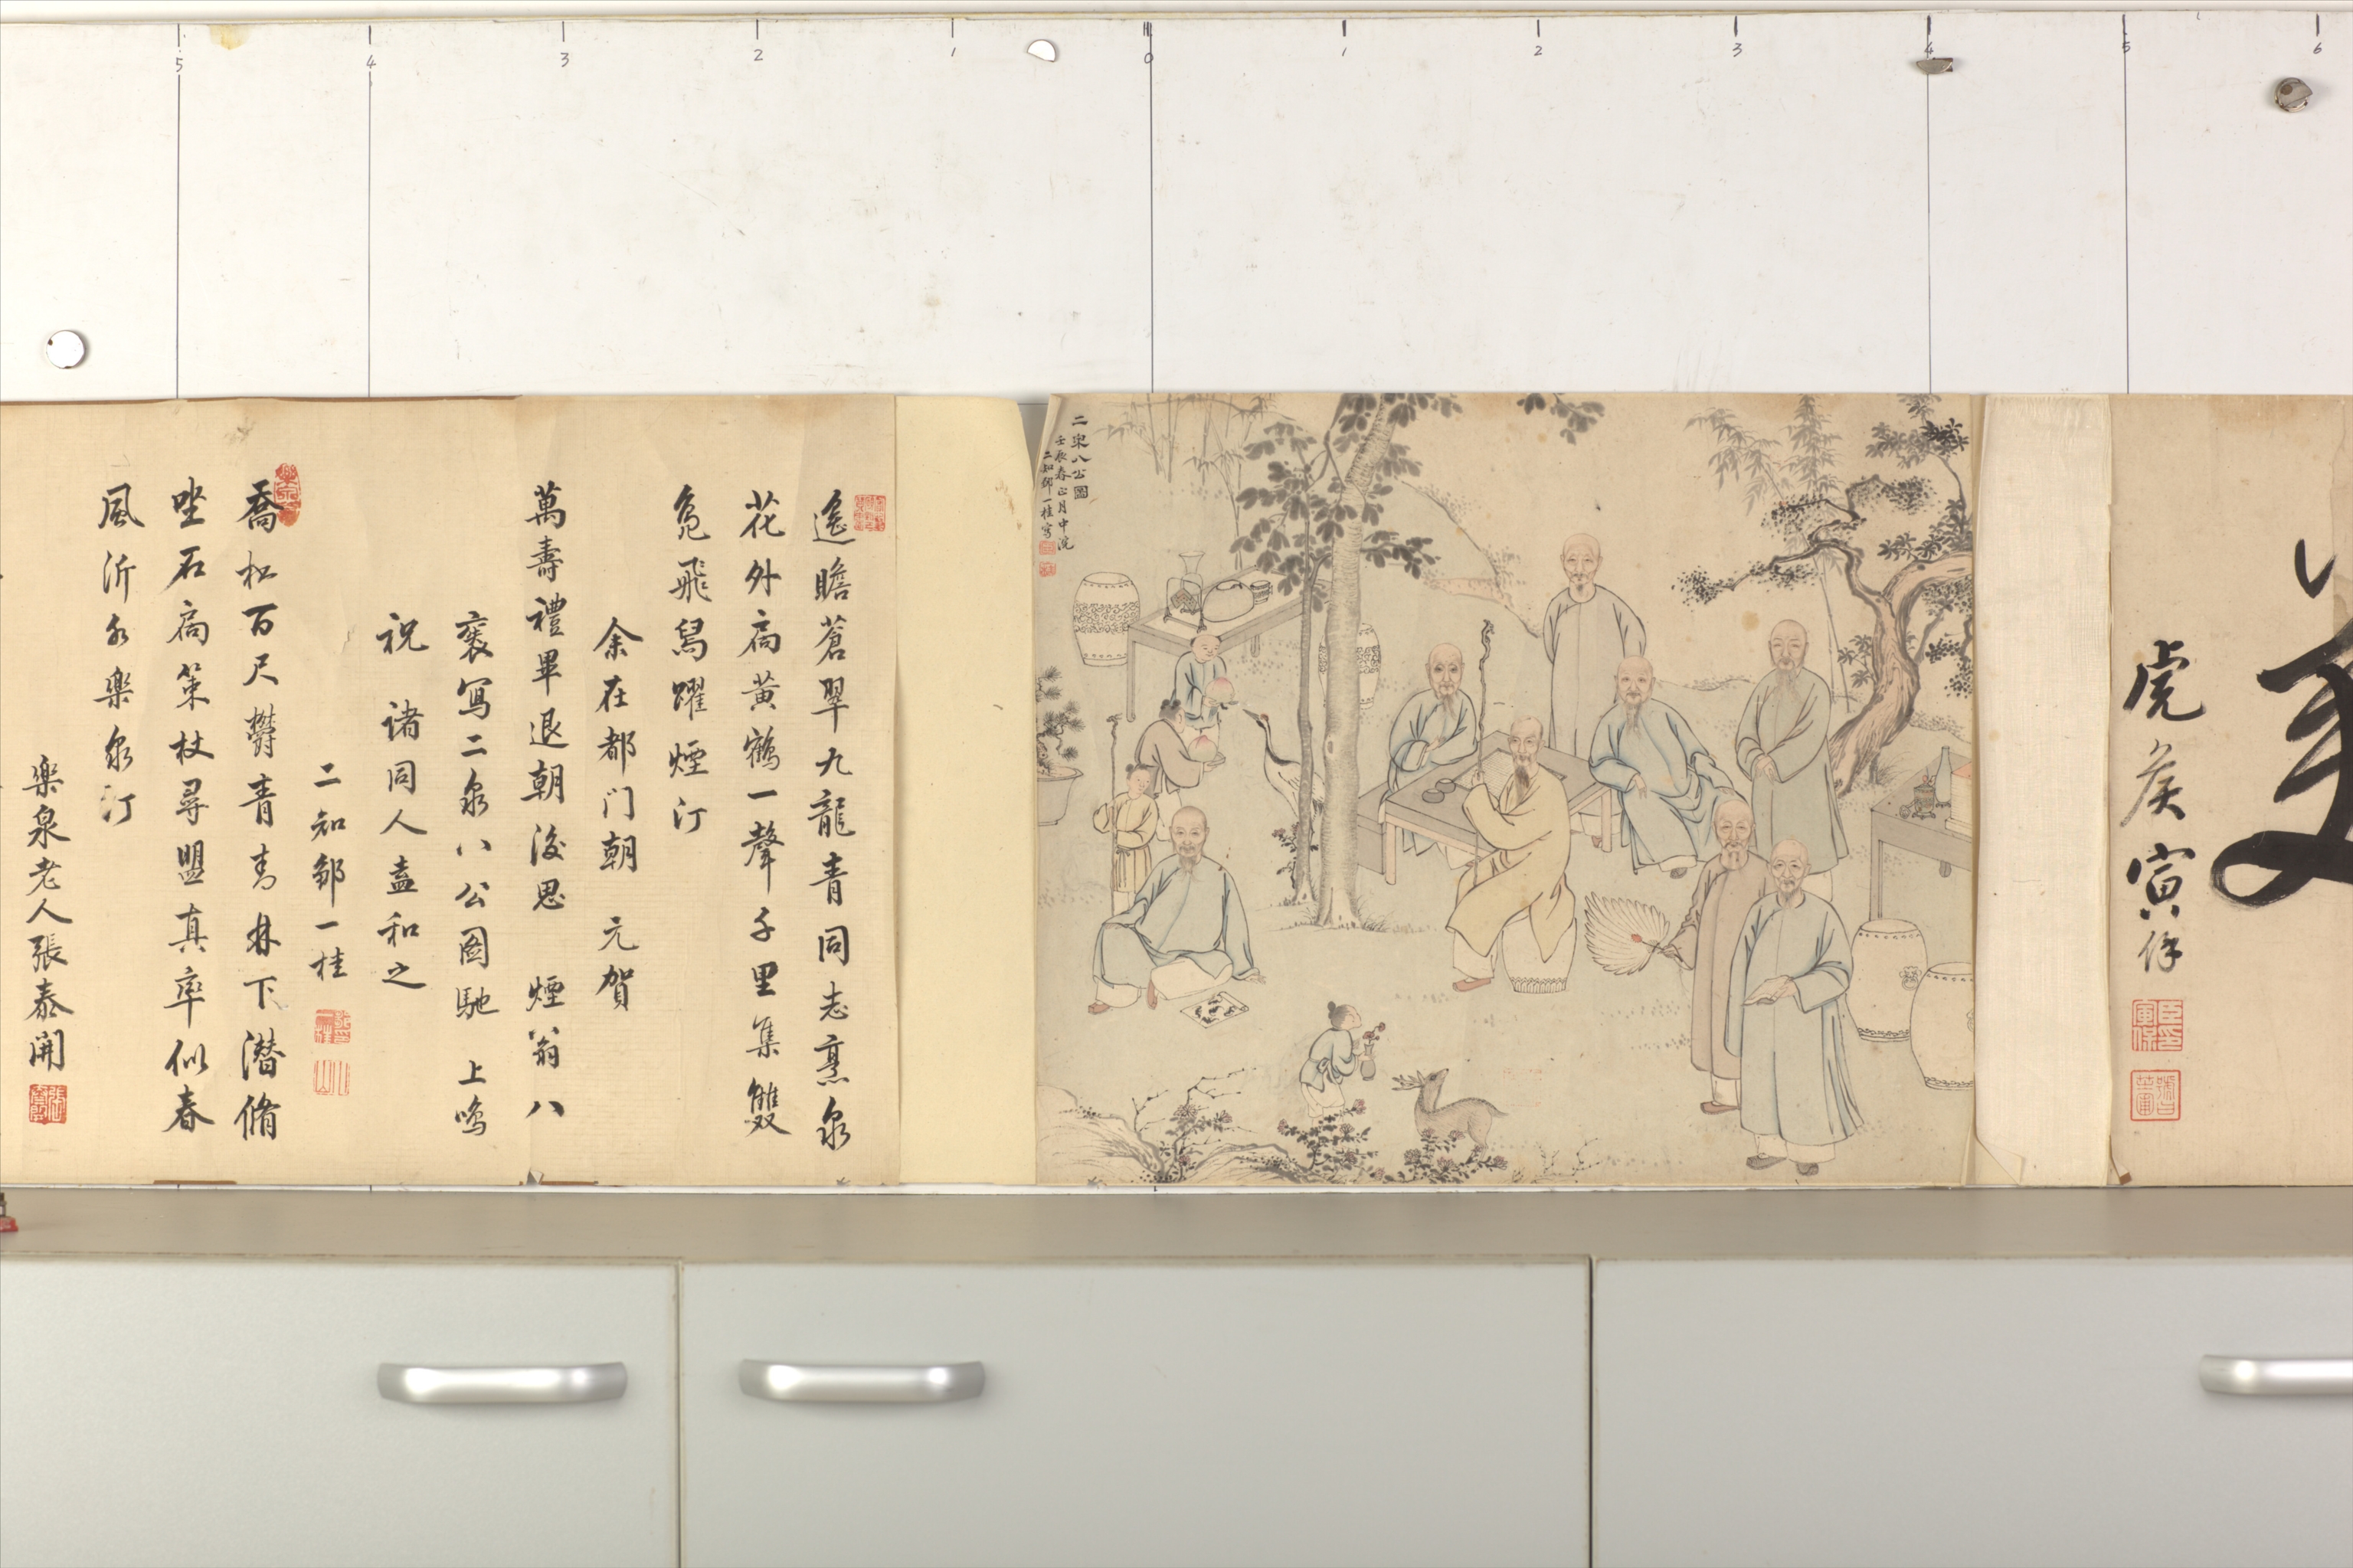 虎侯寅保
二泉八公圖
壬辰春正月中浣
二知鄒一桂寫
遙瞻蒼翠九龍青同志烹泉
花外扃黃鶴一聲千里集雙
鳧飛舄躍煙汀
余在都门朝 元賀
萬壽禮畢退朝後思 煙翁八
裘寫二泉八公圖馳 上鳴
祝 諸同人盍和之
二知鄒一桂
喬松百尺欝青青林下潛脩
坐石扃策杖尋盟真率似春
風沂水樂泉汀
樂泉老人張泰開
5 4 3 2 1 0 1 2 3 4 5 6